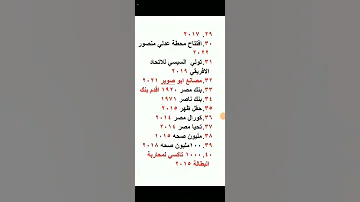 ٢٩. ٢٠١٧
٣٠.افتتاح محطة عدلي منصور
٢٠٢٢
٣١.تولي السيسي للاتحاد
الافريقي ٢٠١٩
٣٢.مصانع ابو صوير ٢٠٢١
٣٣.بنك مصر ١٩٢٠ اقدم بنك
٣٤.بنك ناصر ١٩٧١
٣٥.حقل ظهر ٢٠١٥
٣٦.كورال مصر ٢٠١٤
٣٧.تحيا مصر ٢٠١٤
٣٨.مليون صحه ٢٠١٥
٣٩.١٠٠مليون صحه ٢٠١٨
٤٠.١٠٠٠ تاكسي لمحاربة
البطالة ٢٠١٥